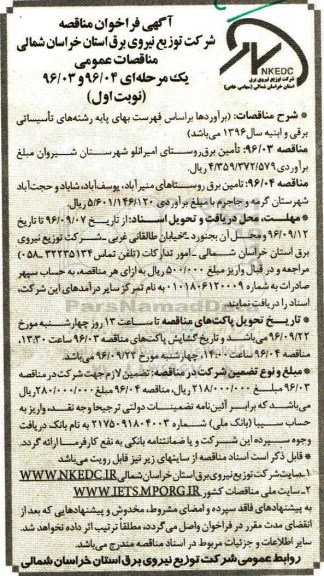 آگهی فراخوان مناقصه
شرکت توزیع نیروی برق استان خراسان شمالی
مناقصات عمومی
یک مرحله‌ای ۹۶/۰۴ و ۹۶/۰۳
(نوبت اول)
NKEDC
شرکت توزیع نیروی برق
استان خراسان شمالی (سهامی خاص)
● شرح مناقصات: (برآوردها براساس فهرست بهای پایه رشته‌های تأسیساتی
برقی و ابنیه سال ۱۳۹۶ می‌باشد)
مناقصه ۹۶/۰۳: تأمین برق روستای امیرانلو شهرستان شیروان مبلغ
برآوردی ۴/۳۵۹/۳۷۲/۵۷۹ ریال.
مناقصه ۹۶/۰۴: تأمین برق روستاهای منیرآباد، یوسف‌آباد، شاباد و حجت‌آباد
شهرستان گرمه و جاجرم با مبلغ برآوردی ۵/۶۰۱/۱۴۶/۱۲۰ ریال.
● مهلت، محل دریافت و تحویل اسناد: از تاریخ ۹۶/۰۹/۰۷ تا تاریخ
۹۶/۰۹/۱۲ و محل آن بجنورد - خیابان طالقانی غربی - شرکت توزیع نیروی
برق استان خراسان شمالی - امور تدارکات (تلفن تماس ۳۲۲۳۵۱۳۴-۰۵۸)
مراجعه و در قبال واریز مبلغ ۵۰۰/۰۰۰ ریال به ازای هر مناقصه، به حساب سپهر
صادرات به شماره ۰۱۰۱۸۰۶۱۲۰۰۰۹ به نام تمرکز سایر درآمدهای این شرکت،
اسناد را دریافت نمایند.
● تاریخ تحویل پاکت‌های مناقصه تا ساعت ۱۳ روز چهارشنبه مورخ
۹۶/۰۹/۲۲ می‌باشد و تاریخ گشایش پاکت‌های مناقصه ۹۶/۰۳ ساعت ۱۳:۳۰،
مناقصه ۹۶/۰۴ ساعت ۱۴:۰۰، چهارشنبه مورخ ۹۶/۰۹/۲۲ می‌باشد.
● مبلغ و نوع تضمین شرکت در مناقصه: تضمین لازم جهت شرکت در مناقصه
۹۶/۰۳ مبلغ ۲۱۸/۰۰۰/۰۰۰ ریال، مناقصه ۹۶/۰۴ مبلغ ۲۸۰/۰۰۰/۰۰۰ ریال
می‌باشد که برابر آئین‌نامه تضمینات دولتی ترجیحا وجه نقد، واریز به
حساب سیبا (بانک ملی) شماره ۲۱۷۵۰۹۱۸۰۴۰۰۳ به نام بانک دریافت
وجوه سپرده این شرکت و یا ضمانتنامه بانکی به نفع کارفرما ارائه گردد.
● قابل ذکر است اسناد مناقصه از سایتهای زیر نیز قابل رویت می‌باشد.
۱- سایت شرکت توزیع نیروی برق استان خراسان شمالی WWW.NKEDC.IR
۲- سایت ملی مناقصات کشور WWW.IETS.MPORG.IR
به پیشنهادهای فاقد سپرده و امضای مشروط، مخدوش و پیشنهادهایی که بعد از
انقضای مدت مقرر در فراخوان واصل می‌گردد، مطلقا ترتیب اثر داده نخواهد شد.
سایر اطلاعات و جزئیات مربوط در اسناد مناقصه مندرج می‌باشد.
روابط عمومی شرکت توزیع نیروی برق استان خراسان شمالی